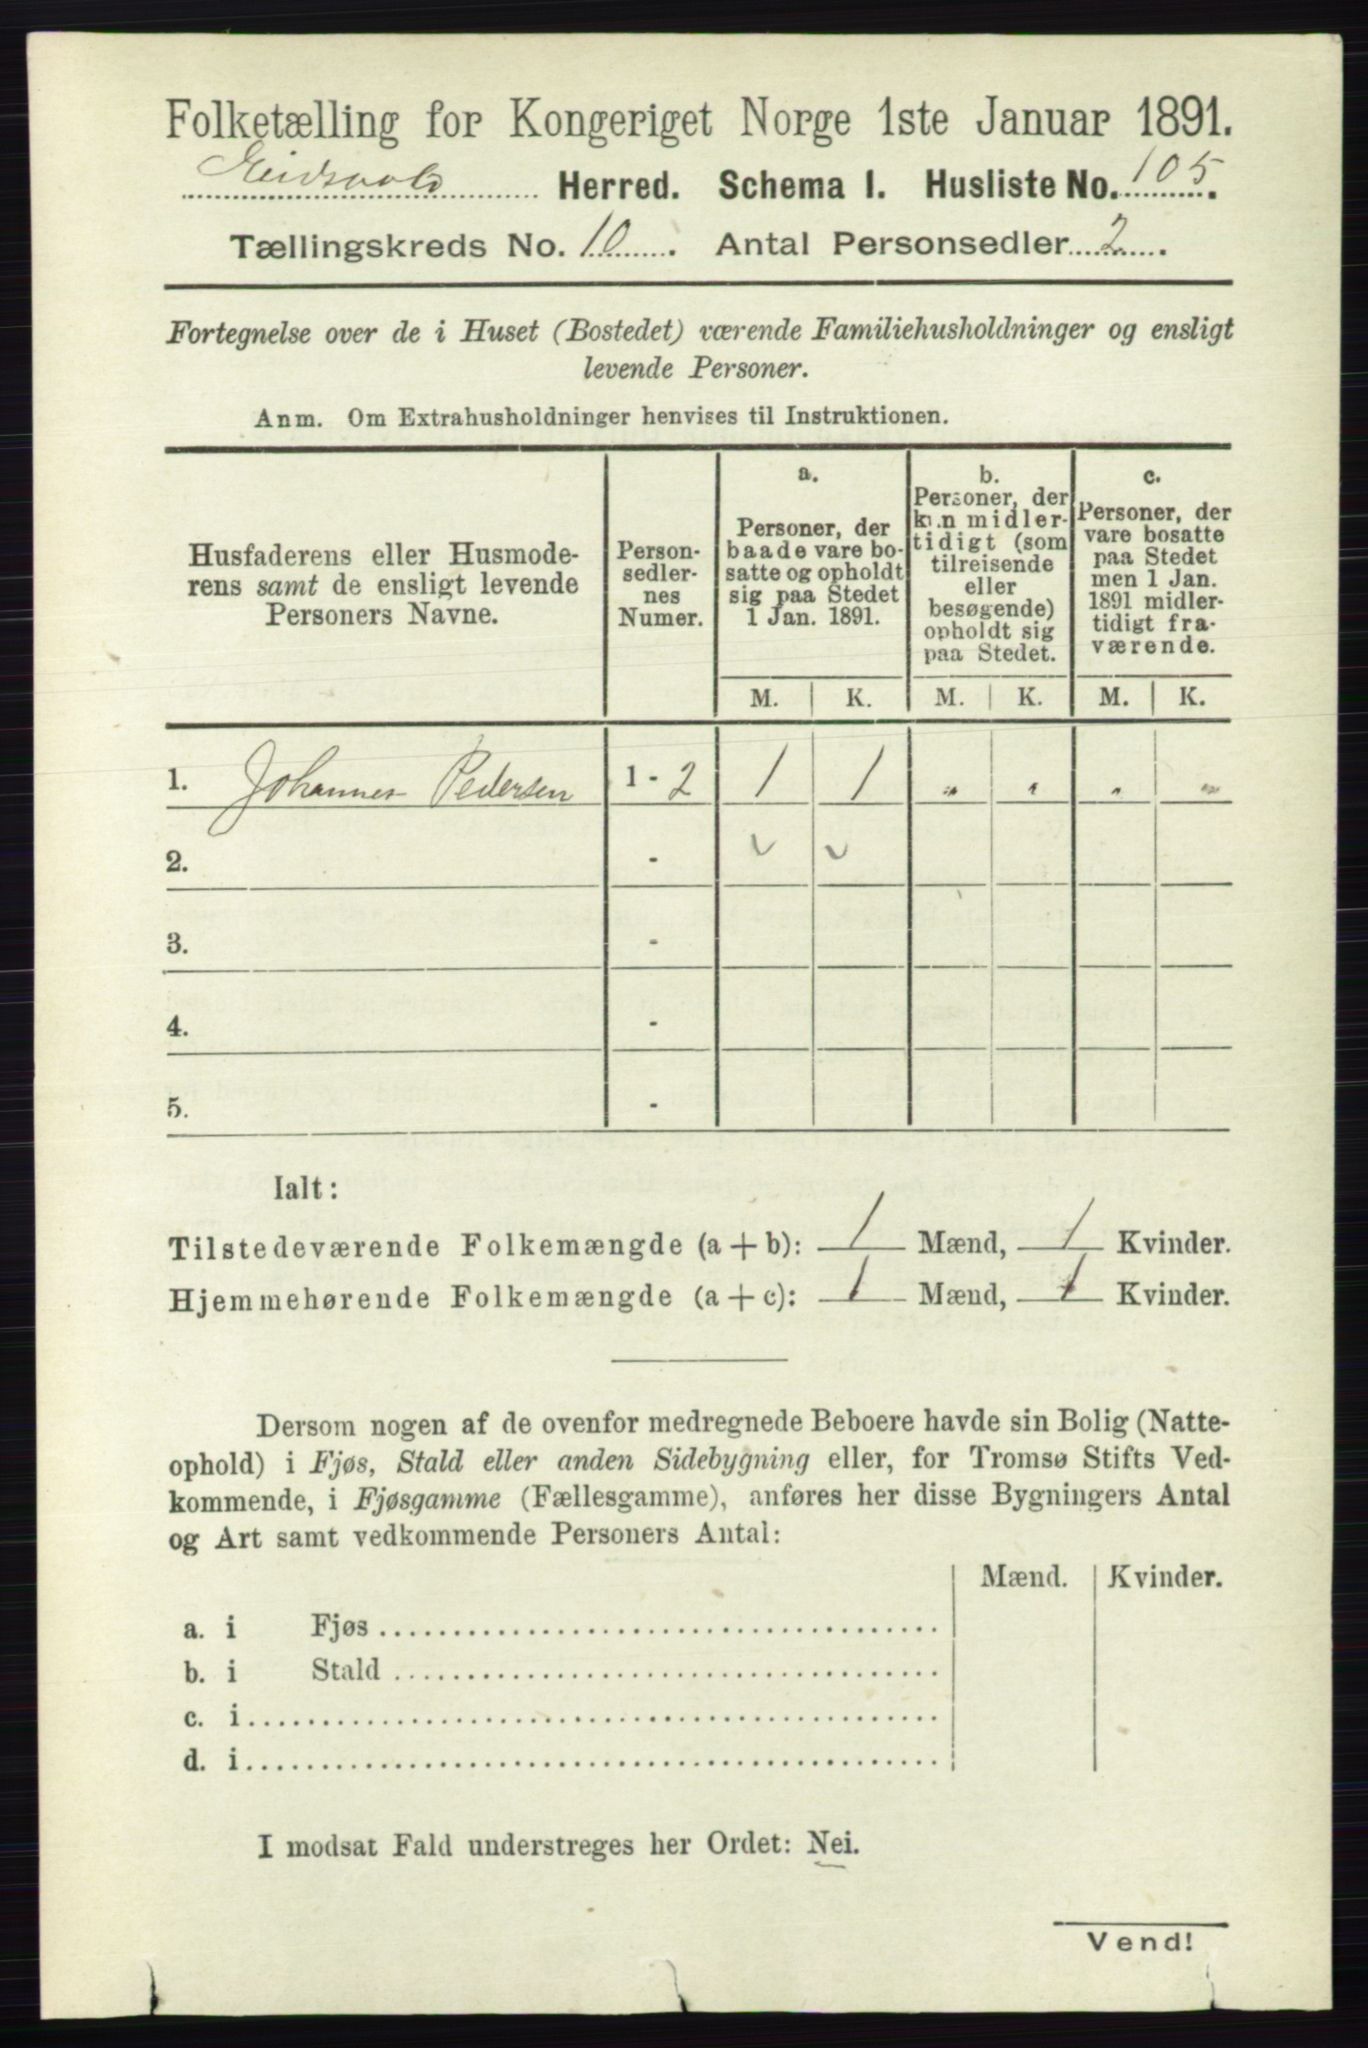 Folketælling for Kongeriget Norge 1ste Januar 1891.
Eidsvold Herred. Schema I. Husliste No. 105.
Tællingskreds No. 10. Antal Personsedler 2.
Fortegnelse over de i Huset (Bostedet) værende Familiehusholdninger og ensligt
levende Personer.
Anm. Om Extrahusholdninger henvises til Instruktionen.
Husfaderens eller Husmode-
rens samt de ensligt levende
Personers Navne.
Person-
sedler-
nes
Numer.
a.
Personer, der
baade vare bo-
satte og opholdt
sig paa Stedet
1 Jan. 1891.
b.
Personer, der
kun midler-
tidigt (som
tilreisende
eller
besøgende)
opholdt sig
paa Stedet.
c.
Personer, der
vare bosatte
paa Stedet
men 1 Jan.
1891 midler-
tidigt fra-
værende.
M. K. M. K. M. K.
1. Johannes Pedersen 1 - 2 1 1 " " " "
2. -
3. -
4. -
5. -
Ialt:
Tilstedeværende Folkemængde (a + b): 1 Mænd, 1 Kvinder.
Hjemmehørende Folkemængde (a + c): 1 Mænd, 1 Kvinder.
Dersom nogen af de ovenfor medregnede Beboere havde sin Bolig (Natte-
ophold) i Fjøs, Stald eller anden Sidebygning eller, for Tromsø Stifts Ved-
kommende, i Fjøsgamme (Fællesgamme), anføres her disse Bygningers Antal
og Art samt vedkommende Personers Antal:
Mænd. Kvinder.
a. i Fjøs
b. i Stald
c. i
d. i
I modsat Fald understreges her Ordet: Nei.
Vend!